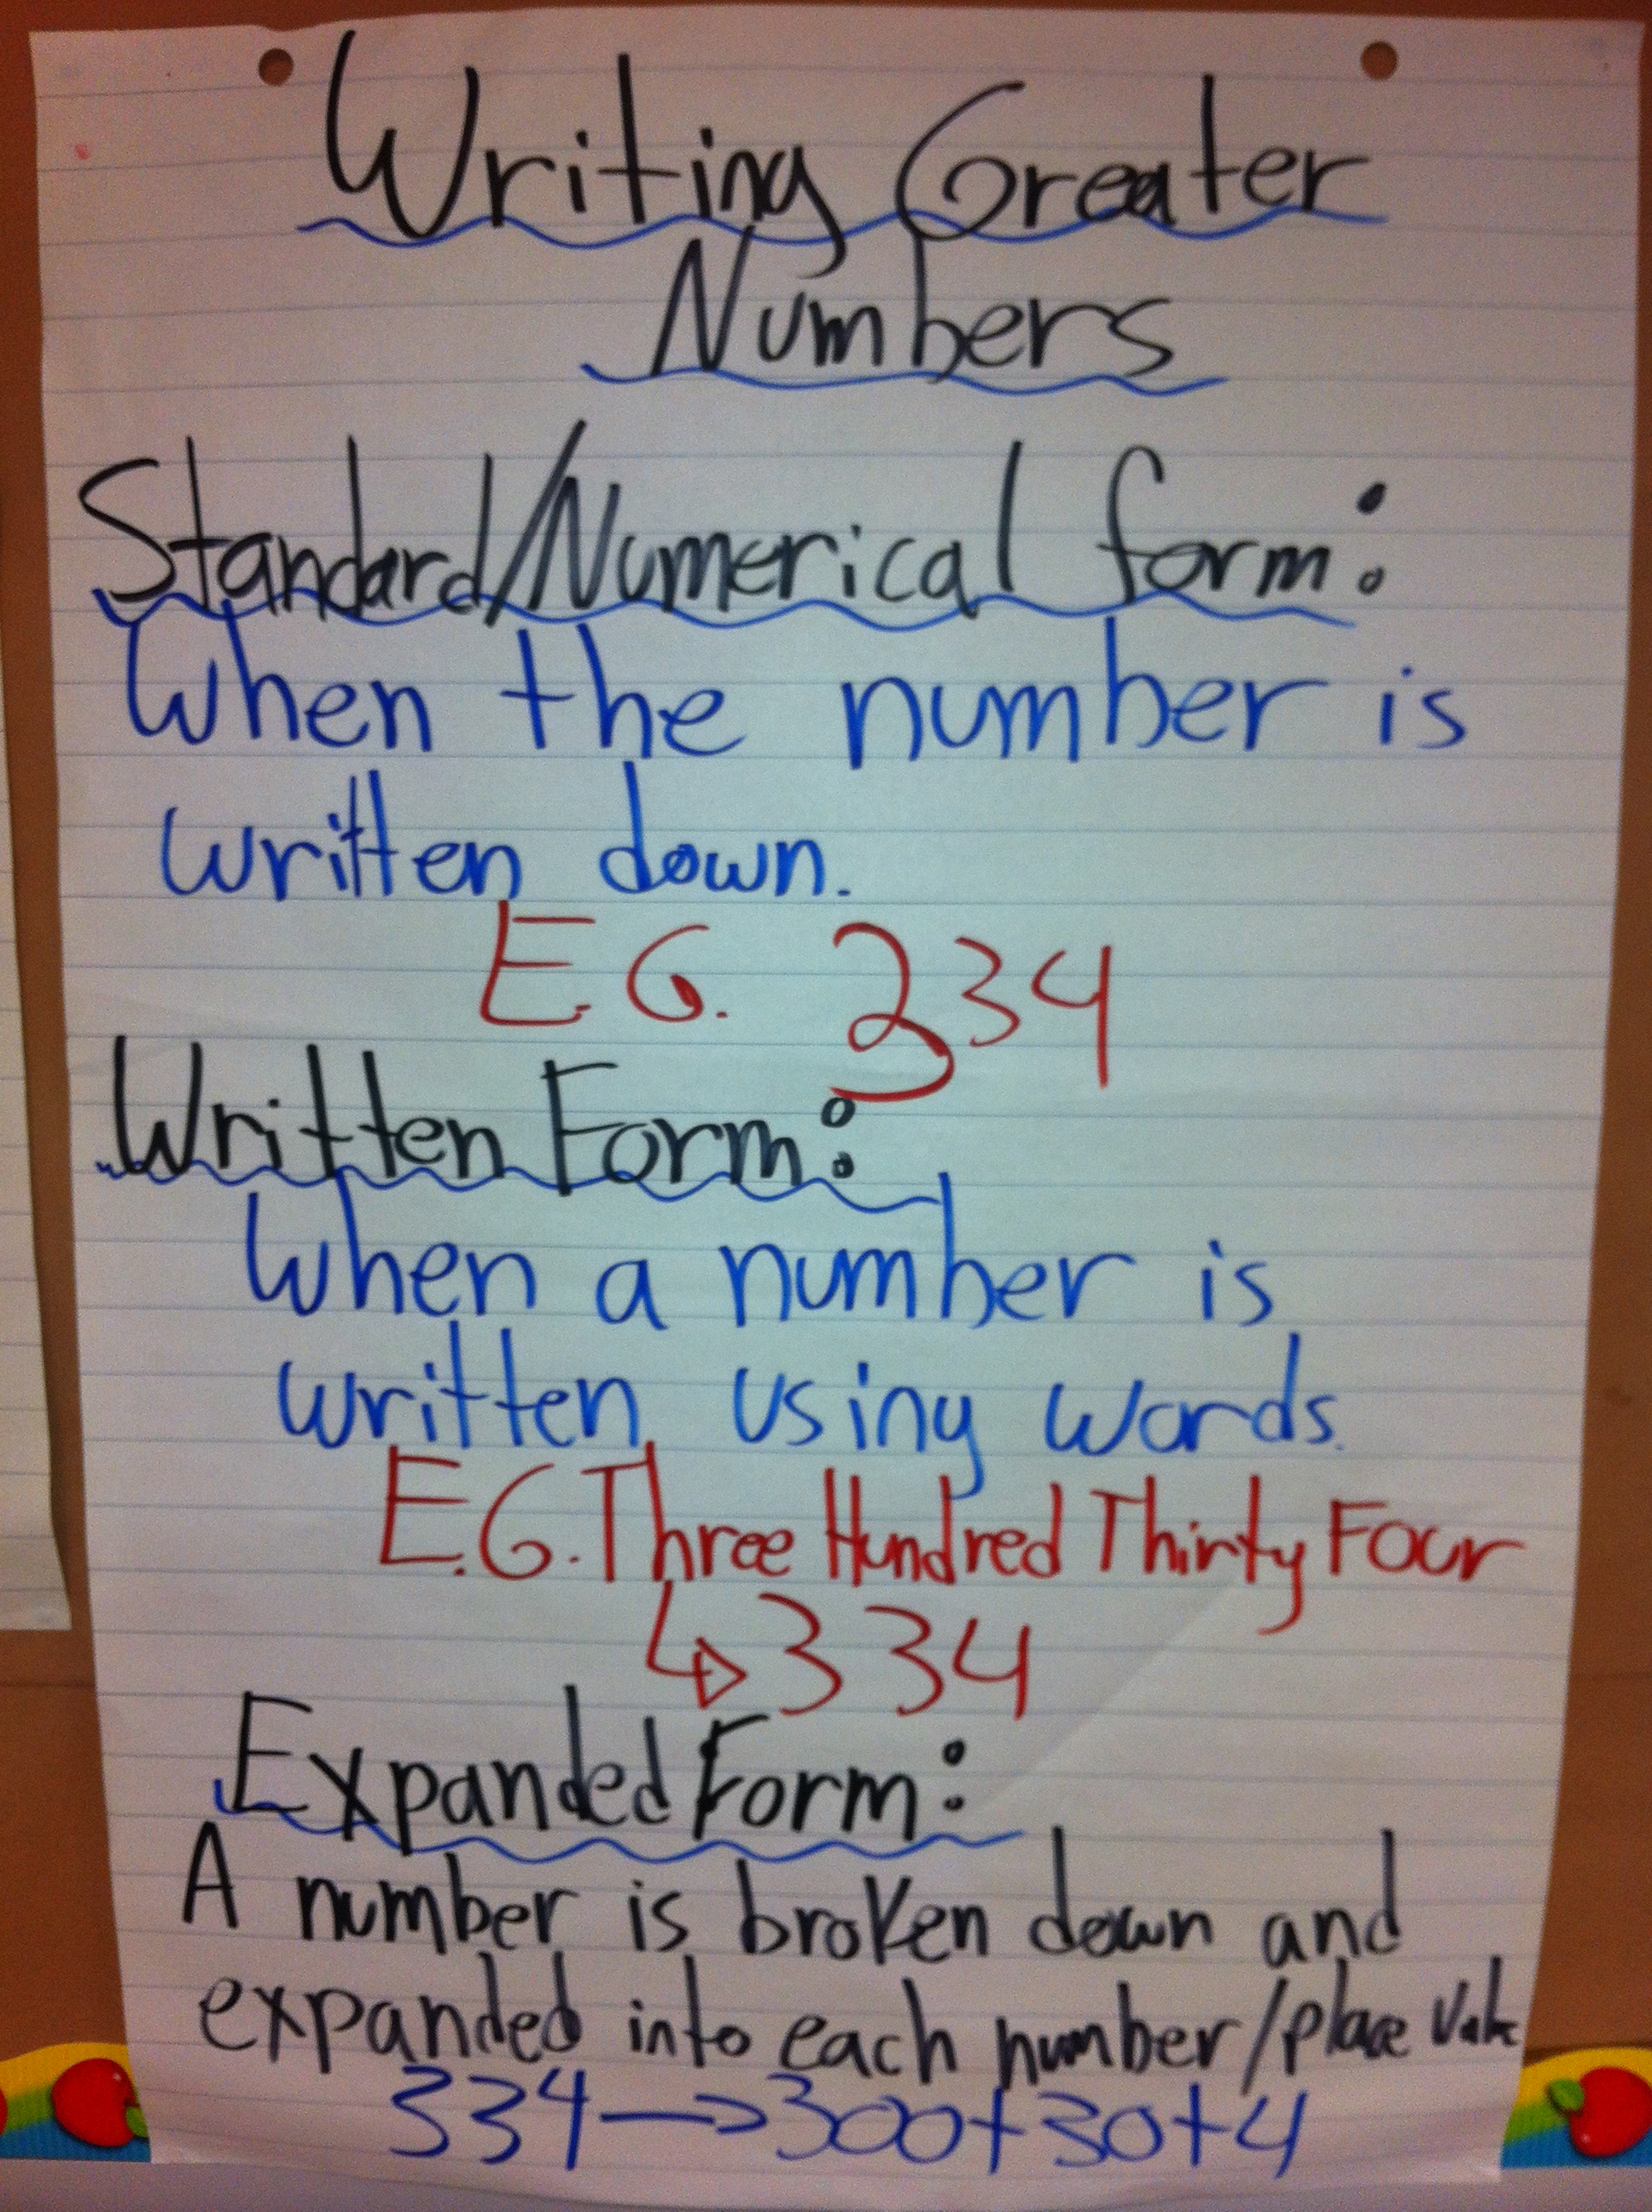 Writing Greater
Numbers
Standard/Numerical form:
When the number is
written down.
E.G. 334
Written Form:
When a number is
written using words.
E.G. Three Hundred Thirty Four
↳ 334
Expanded Form:
A number is broken down and
expanded into each number/place value
334 → 300+30+4